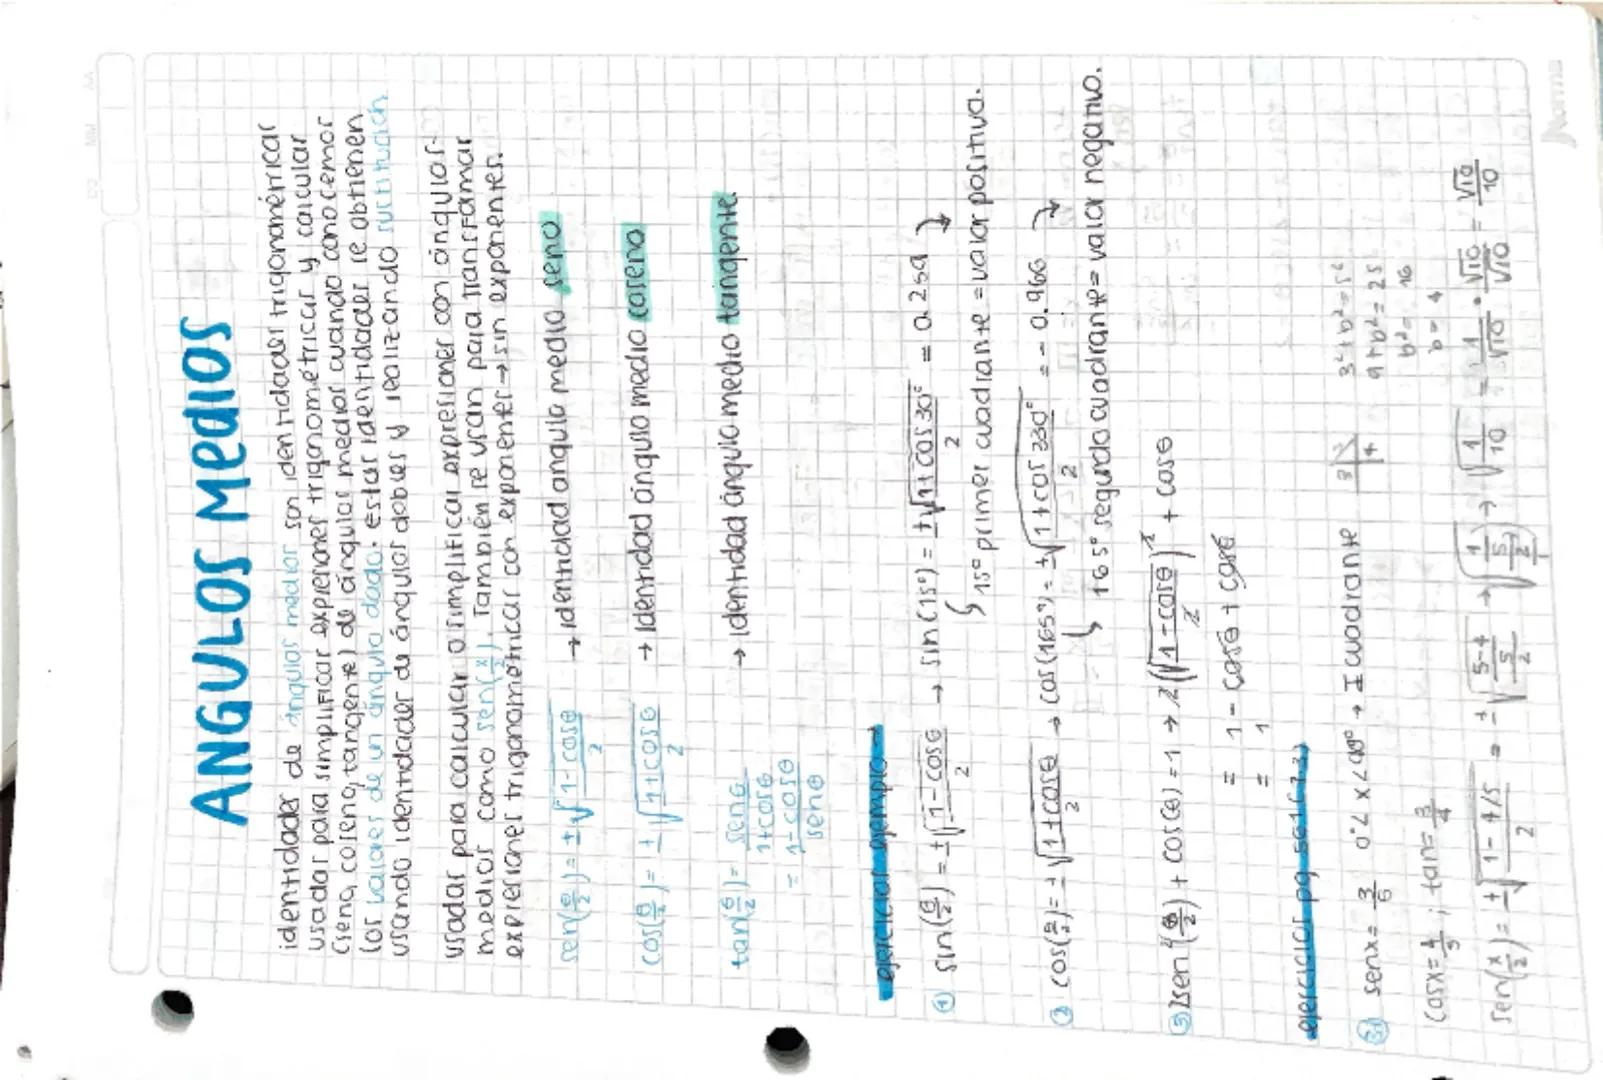 ANGULOS MedIOS
identidades de ángulos medios son identidades trigonométricas
usadas para simplificar expresiones trigonométricas y calcular
(seno, coseno, tangente) de ángulos medios cuando conocemos
los valores de un ángulo dado. Estas identidades se obtienen
usando identidades de ángulos dobles y realizando sustitución
usadas para calcular o simplificar expresiones con ángulos
medios como sen(x/2). También se usan para transformar
expresiones trigonométricas con exponentes → sin exponentes.
sen(θ/2) = ±√((1-cosθ)/2) → identidad angulo medio seno
cos(θ/2) = ±√((1+cosθ)/2) → identidad ángulo medio coseno
tan(θ/2) = senθ/(1+cosθ) → identidad ángulo medio tangente.
= (1-cosθ)/senθ
ejercicios ejemplo →
① sin(θ/2) = ±√((1-cosθ)/2) → sin(15°) = ±√((1+cos30°)/2) = 0.259
15° primer cuadrante = valor positivo.
② cos(θ/2) = ±√((1+cosθ)/2) → cos(165°) = ±√((1+cos330°)/2) = -0.966
165° segundo cuadrante = valor negativo.
③ 2sen²(θ/2) + cos(θ) = 1 → 2(√((1-cosθ)/2))² + cosθ
= 1 - cosθ + cosθ
= 1
ejercicios pg
senx = 3/5 0°<x<90° → I cuadrante 3 5 4 3²+b²=5²
9+b²=25
cosx = 4/5; tan = 3/4 b² = 16
b = 4
sen(x/2) = ±√((1-4/5)/2) = ±√(((5-4)/5)/2) → √((1/5)/(2/1)) → √(1/10) = 1/√10 · √10/√10 = √10/10
Norma